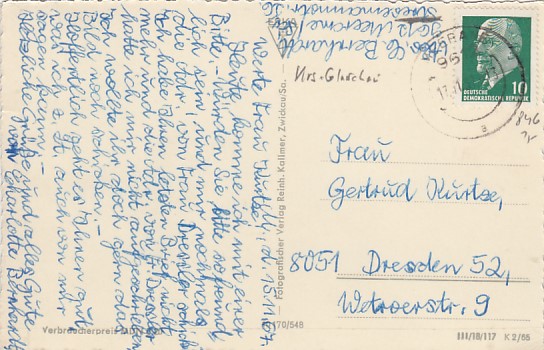 Werte Frau Kurtze!, d. 15.11.67.
Heute komme ich mit einer
Bitte. Würden Sie bitte so freund-
lich sein, und mir nochmals
die Adr. von Frau Dressler schreiben.
Ich habe Ihren letzten Brief nicht
mehr und die Adr. von F. Dressler
hatte ich mir nicht aufgeschrieben.
Ich wollte ihr doch gern das
Bild noch schicken.
Hoffentlich geht es Ihnen gut,
was ich z. Zt. auch von mir
sagen kann.
Herzliche Grüße und alles Gute
von Charlotte Bernhardt
Abs. C. Bernhardt
Krs. Glauchau
DEUTSCHE
DEMOKRATISCHE REPUBLIK
10
Frau
Gertrud Kurtze,
8051 Dresden 52,
9
Fotografischer Verlag Reinh. Kallmer, Zwickau/Sa.
Verbraucherpreis MDN
70/548
III/18/117 K 2/65